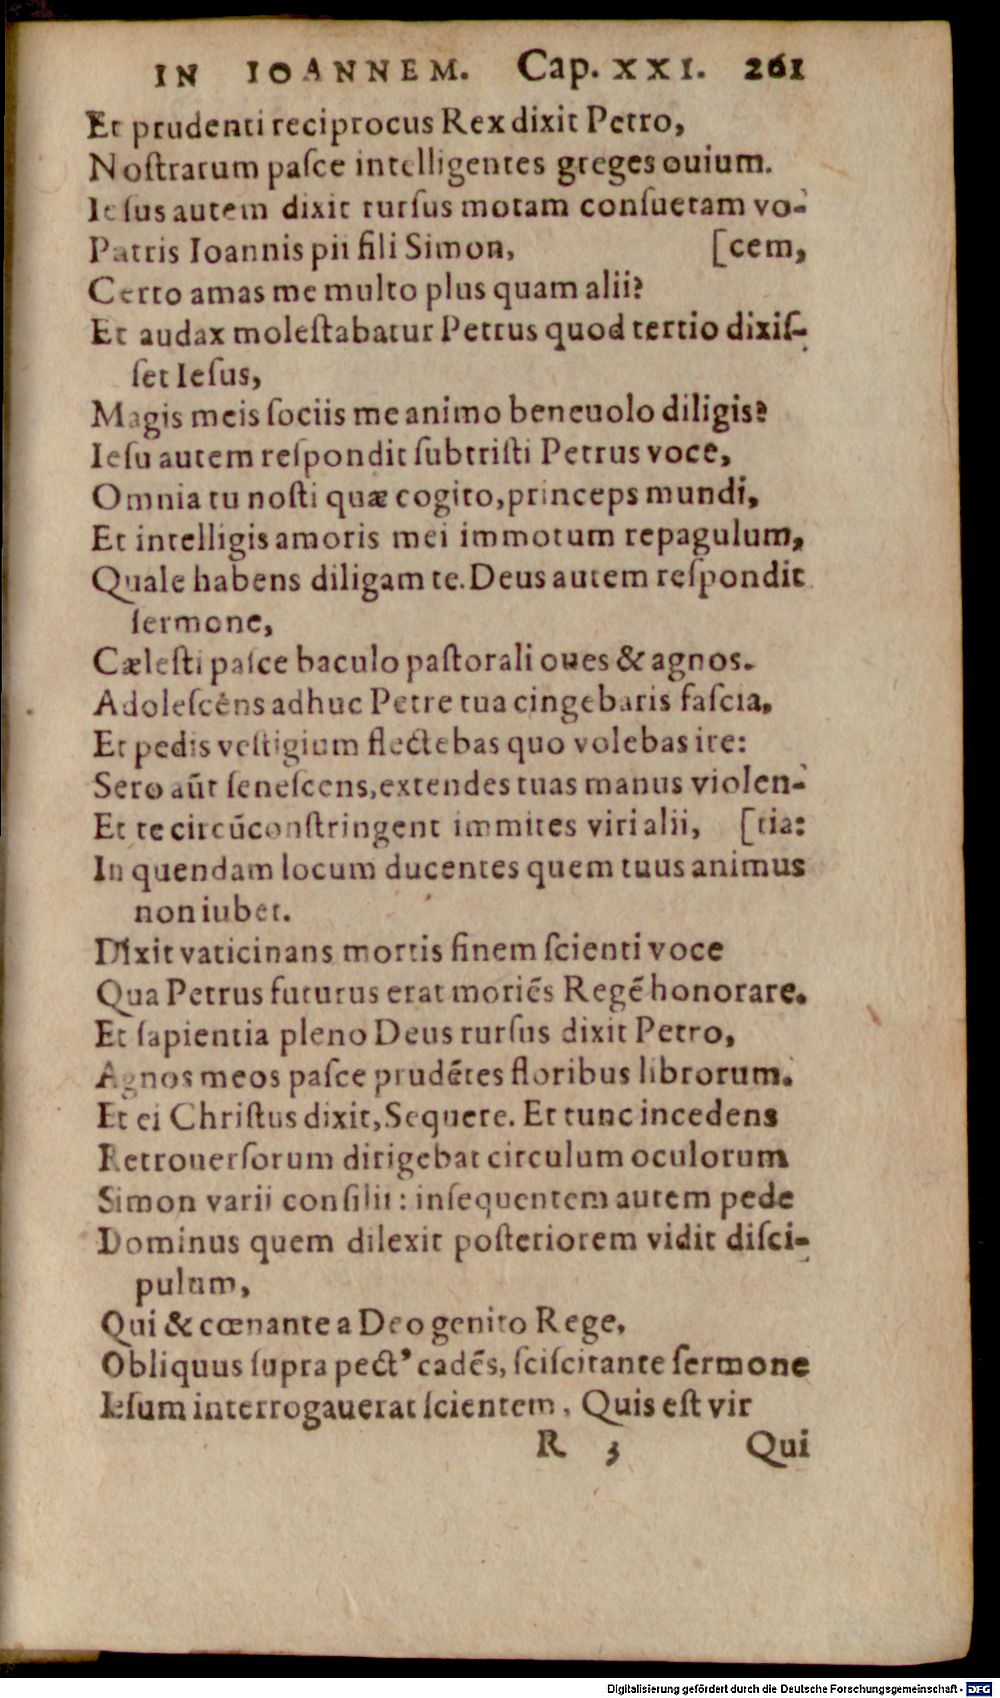 IN IOANNEM. Cap. XXI. 261
Et prudenti reciprocus Rex dixit Petro,
Nostratum pasce intelligentes greges ouium.
Iesus autem dixit rursus motam consuetam vo-
Patris Ioannis pii fili Simon, [cem,
Certo amas me multo plus quam alii?
Et audax molestabatur Petrus quod tertio dixis-
set Iesus,
Magis meis sociis me animo beneuolo diligis?
Iesu autem respondit subtristi Petrus voce,
Omnia tu nosti quæ cogito, princeps mundi,
Et intelligis amoris mei immotum repagulum,
Quale habens diligam te. Deus autem respondit
sermone,
Cælesti pasce baculo pastorali oues & agnos.
Adolescens adhuc Petre tua cingebaris fascia,
Et pedis vestigium flectebas quo volebas ire:
Sero aūt senescens, extendes tuas manus violen-
Et te circūconstringent immites viri alii, [tia:
In quendam locum ducentes quem tuus animus
non iubet.
Dixit vaticinans mortis finem scienti voce
Qua Petrus futurus erat moriēs Regē honorare.
Et sapientia pleno Deus rursus dixit Petro,
Agnos meos pasce prudētes floribus librorum.
Et ei Christus dixit, Sequere. Et tunc incedens
Retrouersorum dirigebat circulum oculorum
Simon varii consilii: insequentem autem pede
Dominus quem dilexit posteriorem vidit disci-
pulum,
Qui & cœnante a Deo genito Rege,
Obliquus supra pect' cadēs, sciscitante sermone
Iesum interrogauerat scientem, Quis est vir
R 3 Qui
Digitalisierung gefördert durch die Deutsche Forschungsgemeinschaft - DFG